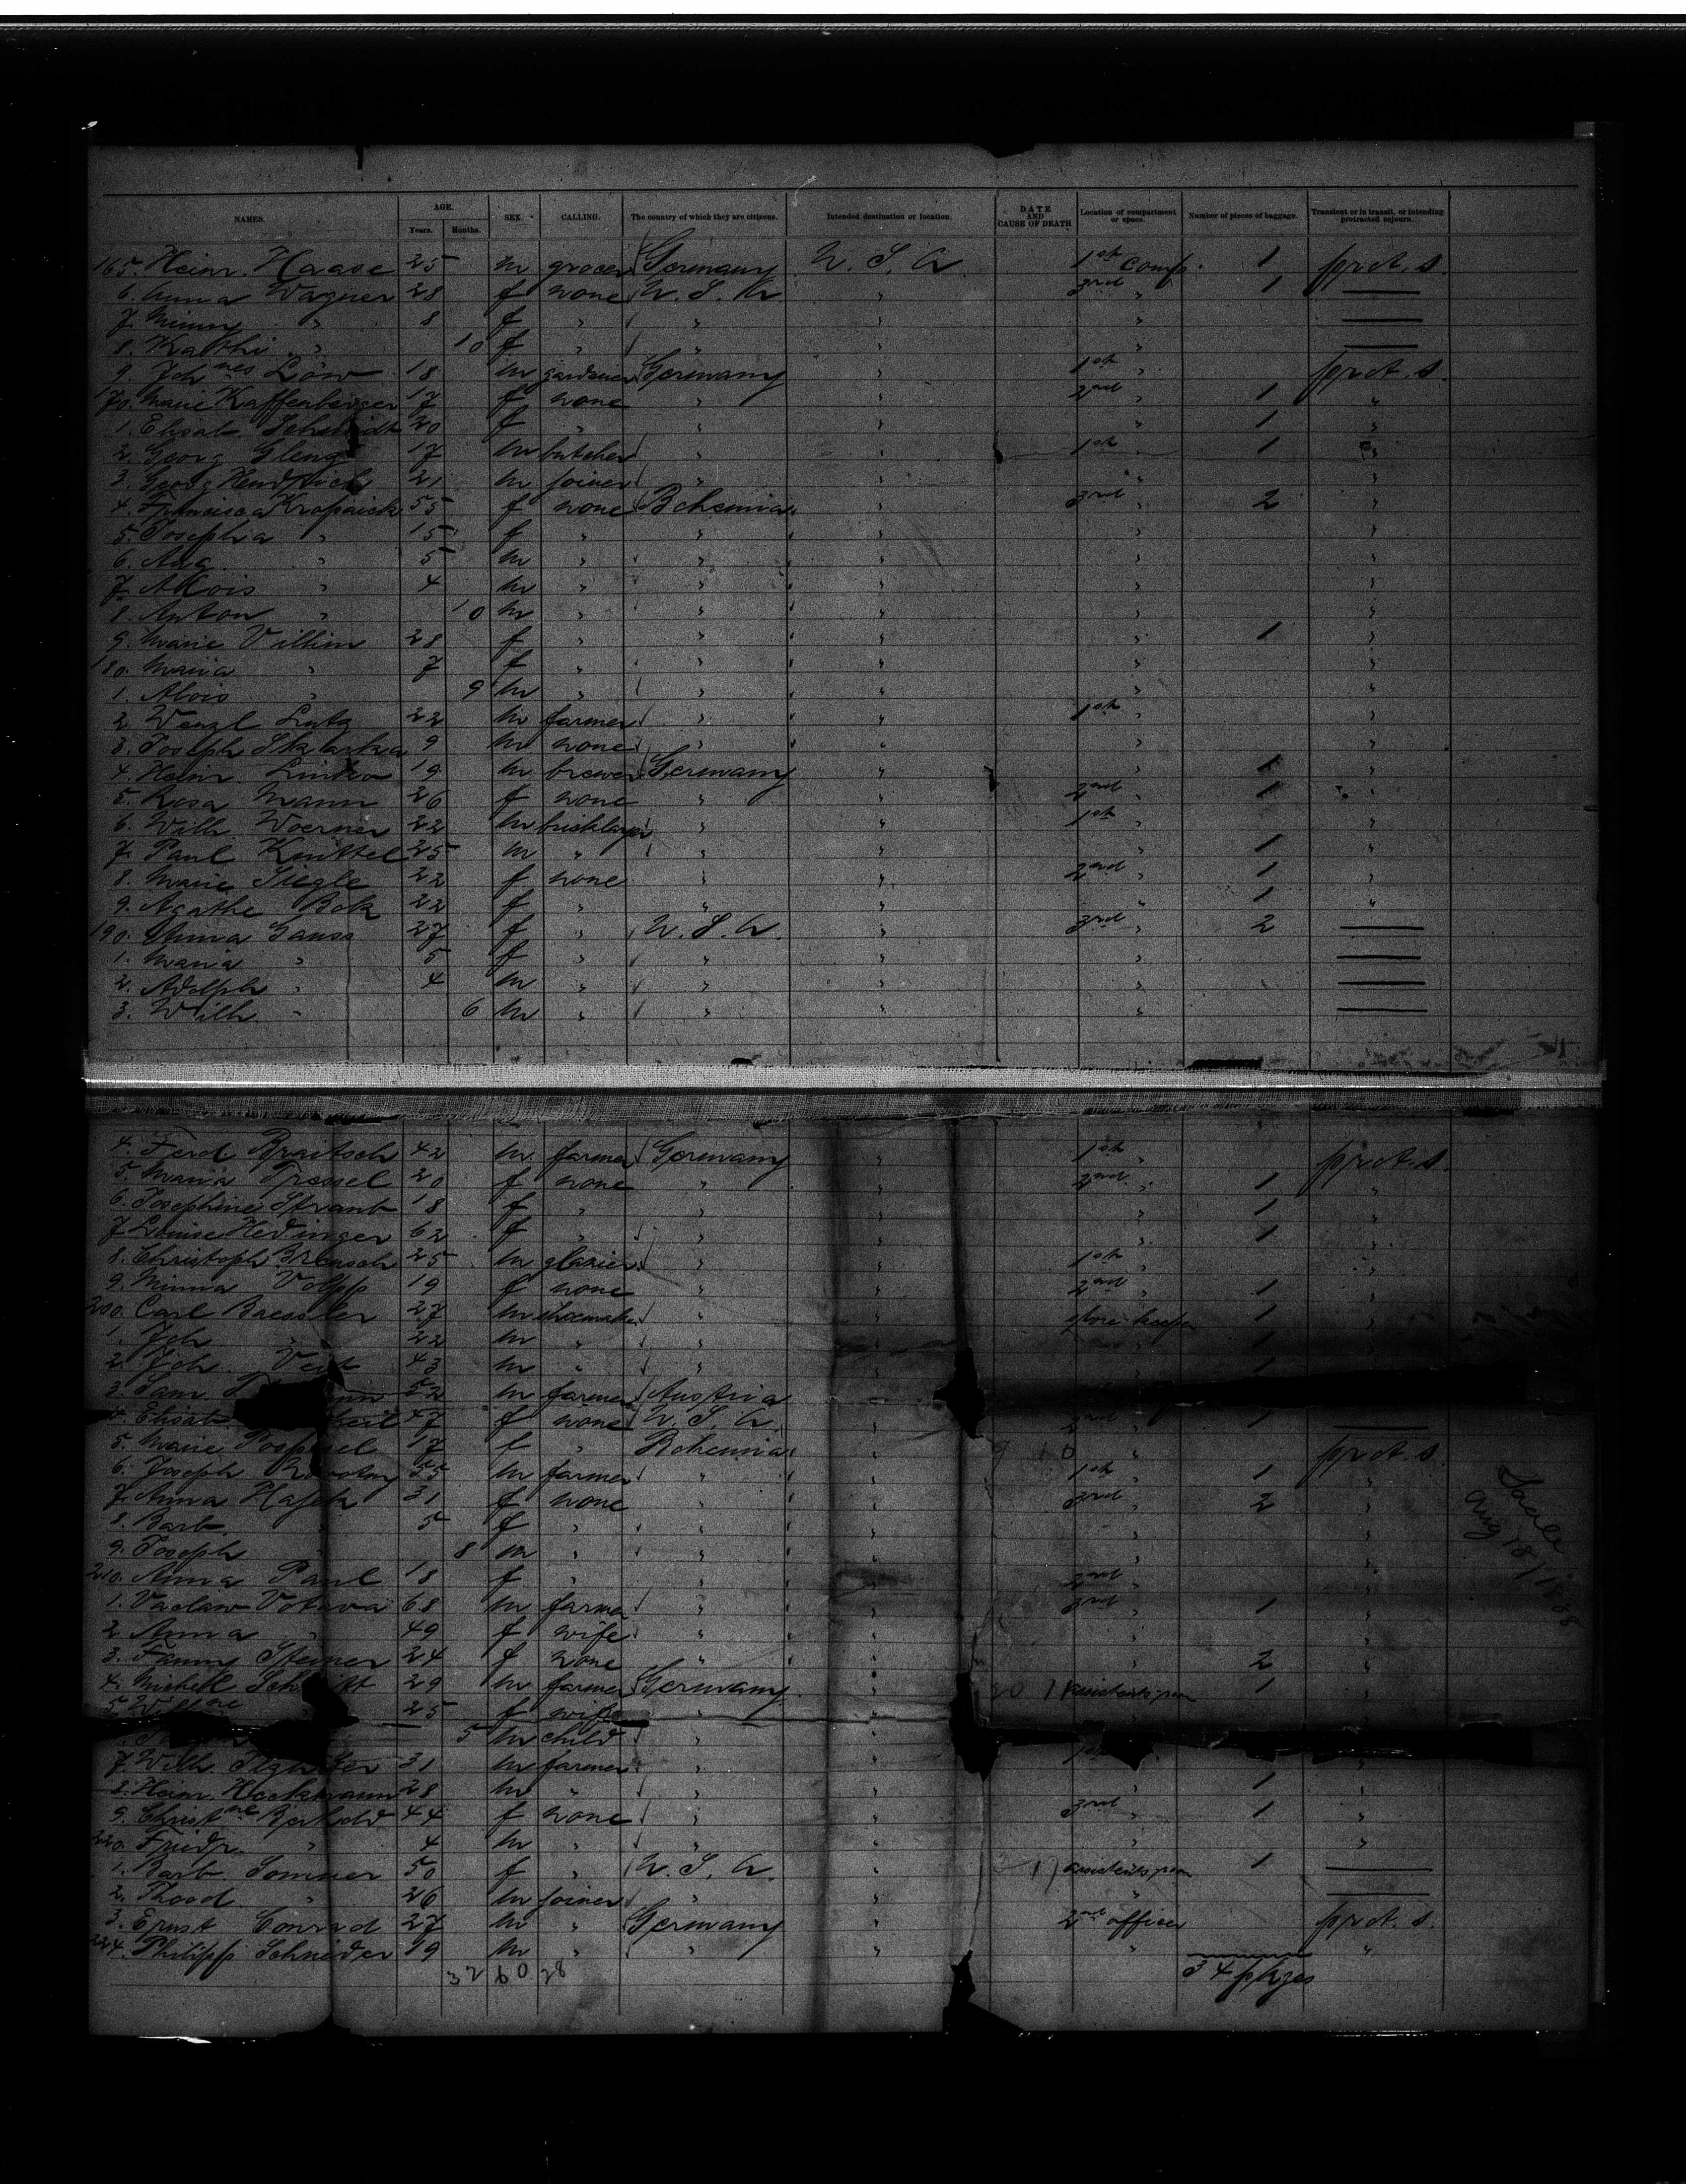 NAMES. AGE. Years. Months. SEX. CALLING. The country of which they are citizens. Intended destination or location. DATE AND CAUSE OF DEATH Location of compartment or space. Number of pieces of baggage. Transient or in transit, or intending protracted sojourn.
165. Heinr. Haase 25 m grocer Germany U. S. A 1st comp. 1 prot. s.
6. Anna Wagner 28 f none U. S. A " 3rd " 1 —
7. Minny " 8 f " " " " —
8. Kathi " 10 f " " " " —
9. Joh nes Löw 18 m gardener Germany " 1st " prot. s.
170. Marie Kaffenberger 17 f none " " 2nd " 1 "
1. Elisab. Schmidt 20 f " " " " 1 "
2. Georg Gleng 17 m butcher " " 1st " 1 "
3. Georg 21 m joiner " " " "
4. Francisca Kropaick 55 f none Bohemia " 3rd " 2 "
5. Josepha " 15 f " " " " "
6. Aug. " 5 m " " " " "
7. Alois " 4 m " " " " "
8. Anton " 10 m " " " " "
9. Marie Villim 28 f " " " " 1 "
180. Maria " 7 f " " " " "
1. Alois " 9 m " " " " "
2 Wenzl Lutz 22 m farmer " " 1st " "
3. Joseph Sklarka 9 m none " " " "
4. Heinr. 19 m brewer Germany " " 1 "
5. Rosa Mann 26 f none " " 2nd " 1 "
6. Wilh. Woerner 22 m bricklayer " " 1st " "
7. Paul Knittel 25 m " " " " 1 "
8. Marie Siegle 22 f none " " 2nd " 1 "
9. Agathe Bok 22 f " " " " 1 "
190. Anna Gauss 27 f " U. S. A. " 3rd " 2 —
1. Maria " 5 f " " " " —
2. Adolph " 4 m " " " " —
3. Wilh. " 6 m " " " " —
4. Ferd Braitsch 42 m. farmer Germany " 1st " prot. s.
5. Maria Tressel 20 f none " " 2nd " 1 "
6. Josephine Straub 18 f " " " " 1 "
7 Louise Hedinger 62 f " " " " 1 "
8. Christoph 25 m glazier " " 1st " "
9. Minna Volpp 19 f none " " 2nd " 1 "
200. Carl Baessler 27 m shoemaker " " store keeper 1 "
1. Joh " 22 m " " " " 1 "
2. Joh. Veit 43 m " " " 1
3. Sam. 52 m farmer Austria
4. Elisab 47 f none U. S. A. " 2nd " 1 —
5. Marie Pospisel 17 f " Bohemia " " prot. s.
6. Joseph 55 m farmer " " 1st " 1 "
7. Anna Hajek 31 f none " " 3rd " 2 "
8. Barb. " 5 f " " " " "
9. Joseph " 8 m " " " " "
210. Anna Paul 18 f " " " 2nd " "
1. Vaclaw Votava 68 m farmer " " 3rd " 1 "
2 Anna " 49 f wife " " " "
3. Fanny Steiner 24 f none " " " 2 "
4. Michell Schmitt 29 m farmer Germany " 1 "
5. Wilh ne " 25 f wife " "
5 m child "
7 Wilh. 31 m farmer " " 1st "
8. Heinr. Heckmann 28 m " " " 1 "
9. Christ ne 44 f none " " 3rd " 1 "
220. Friedr. " 4 m " " " " "
1. Barb Sommer 50 f " U. S. A. " 1 —
2. " 26 m joiner " " " —
3. Ernst Conrad 27 m " Germany " 2nd officer prot. s.
224. Philipp Schneider 19 m " " " " "
32 60 28 34
Saale
Aug 18/1888